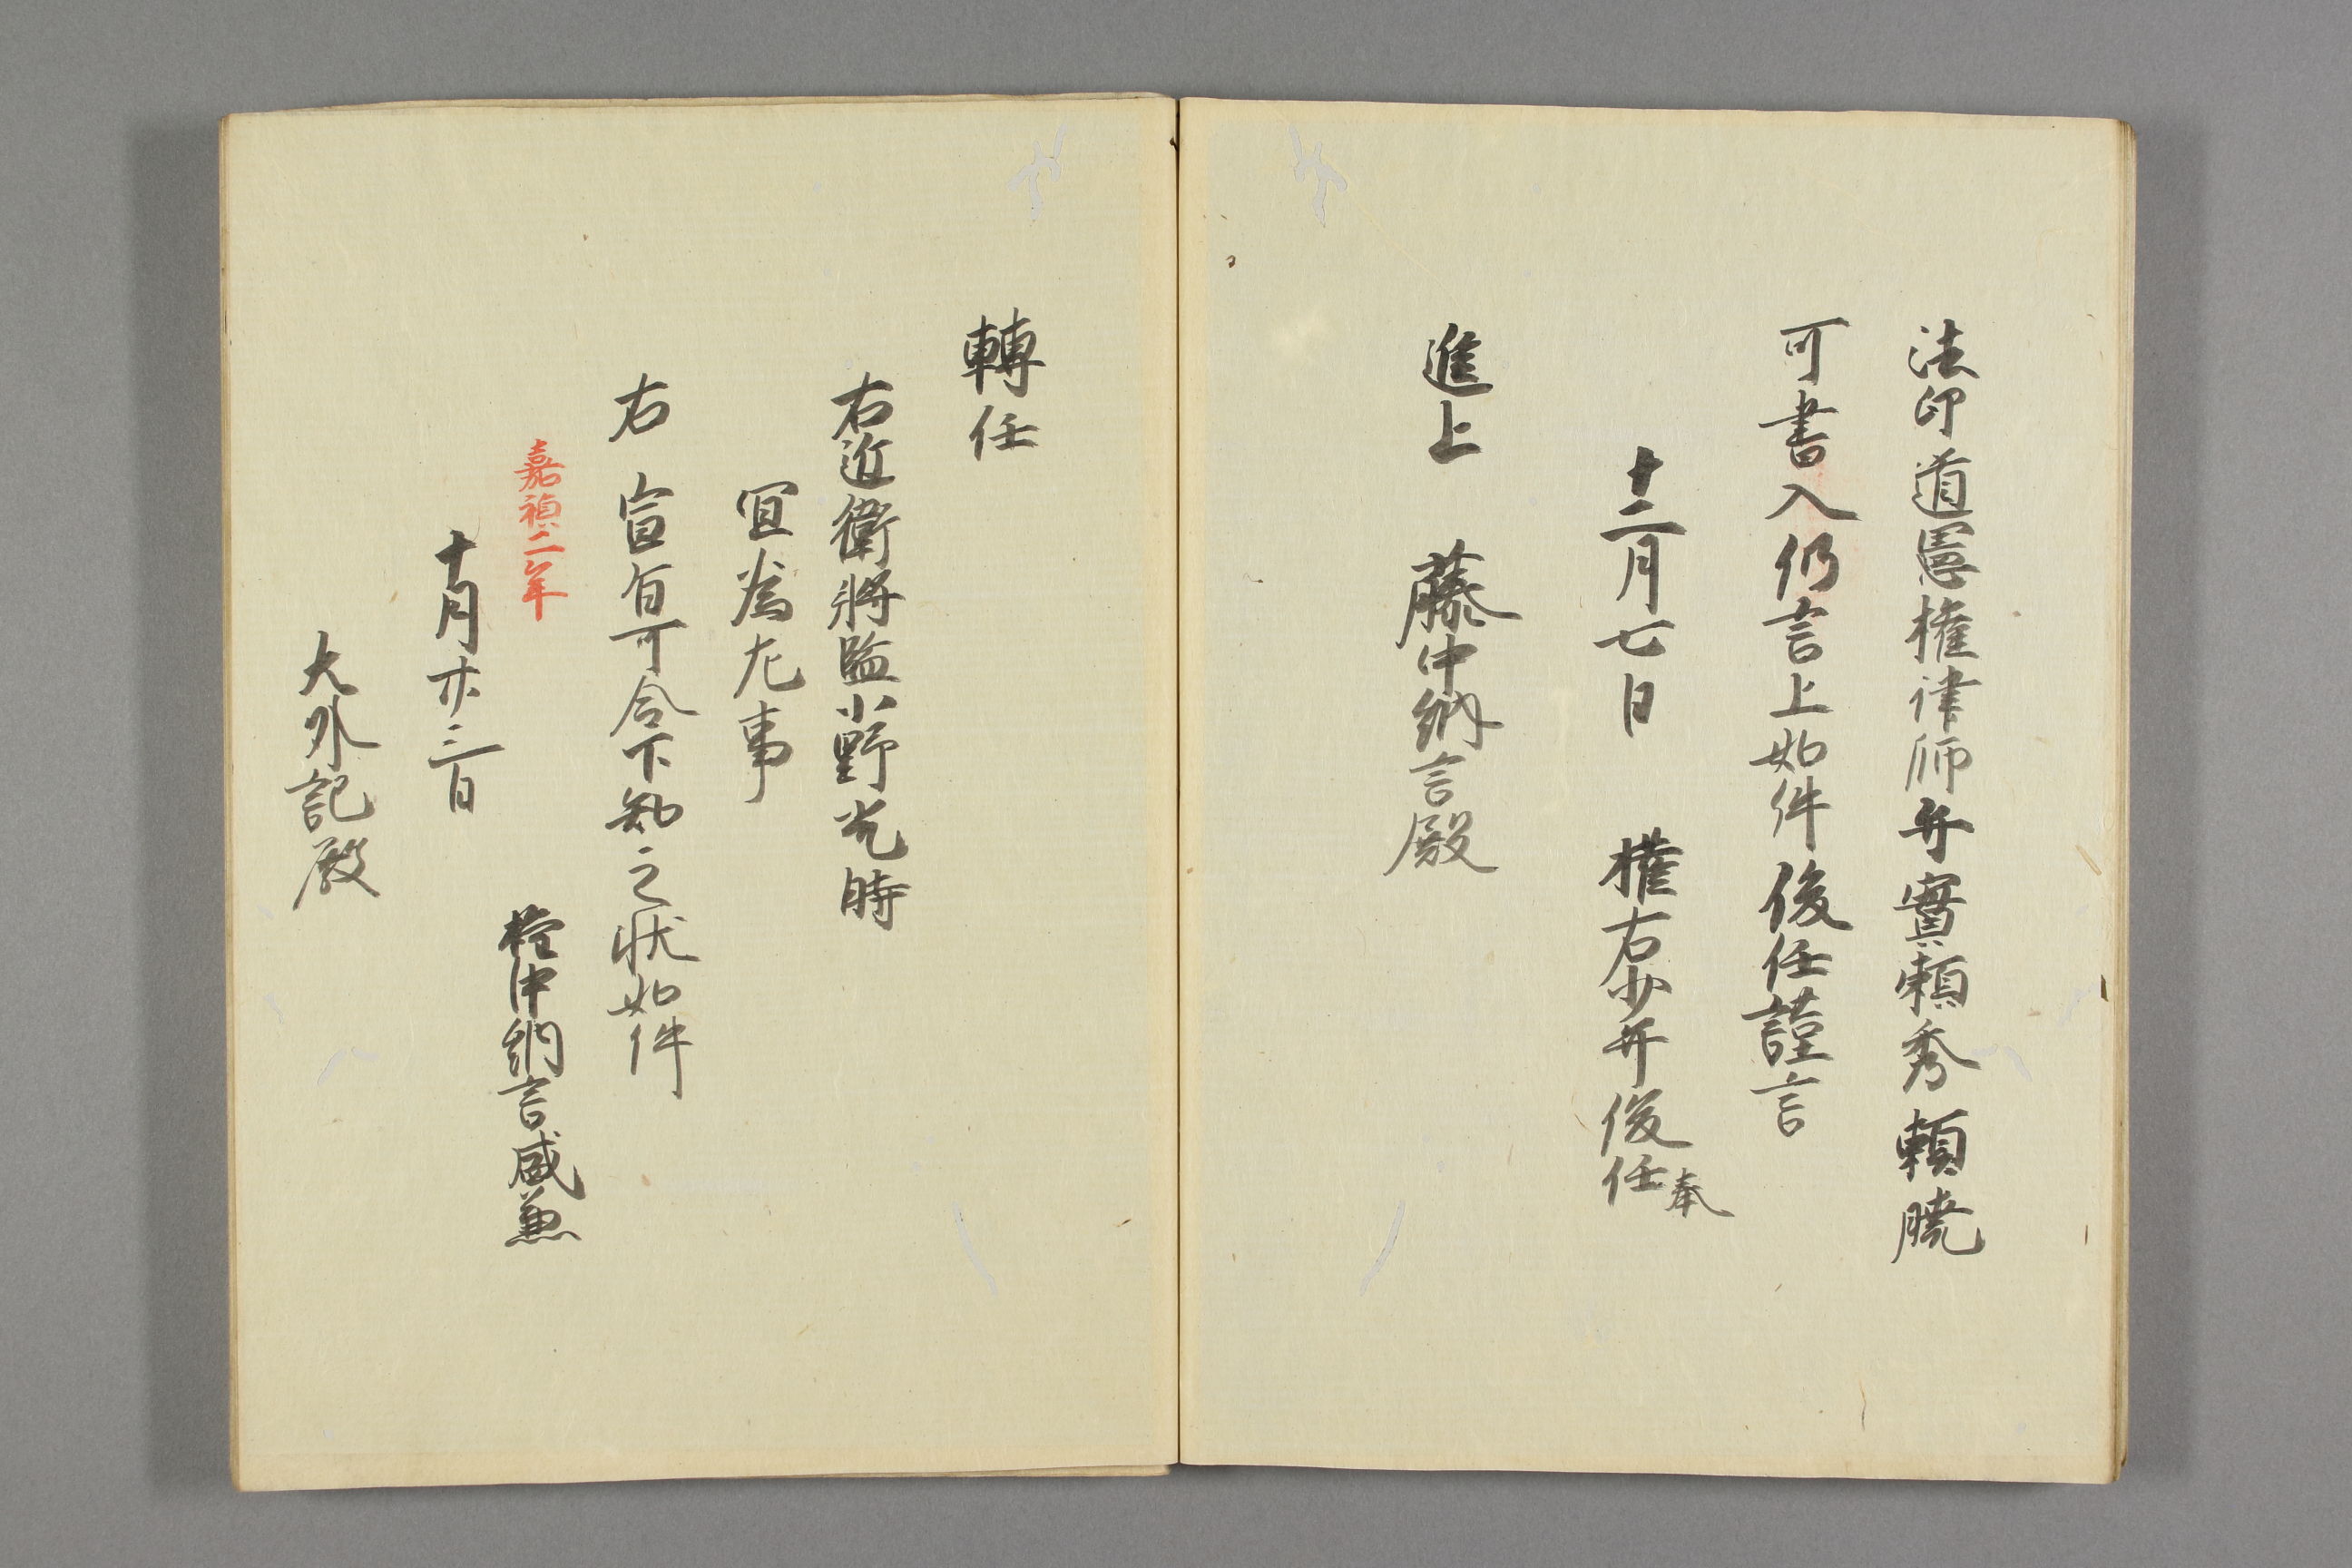 法印道憲権律師弁實頼秀頼暁
可書入仍言上如件俊任謹言
十二月七日　権右少弁俊任奉
進上　藤中納言殿
轉任
右近衛將監小野光時
宜為左事
右宣旨可令下知之状如件
嘉禎二年
十月廿三日　権中納言盛兼
大外記殿